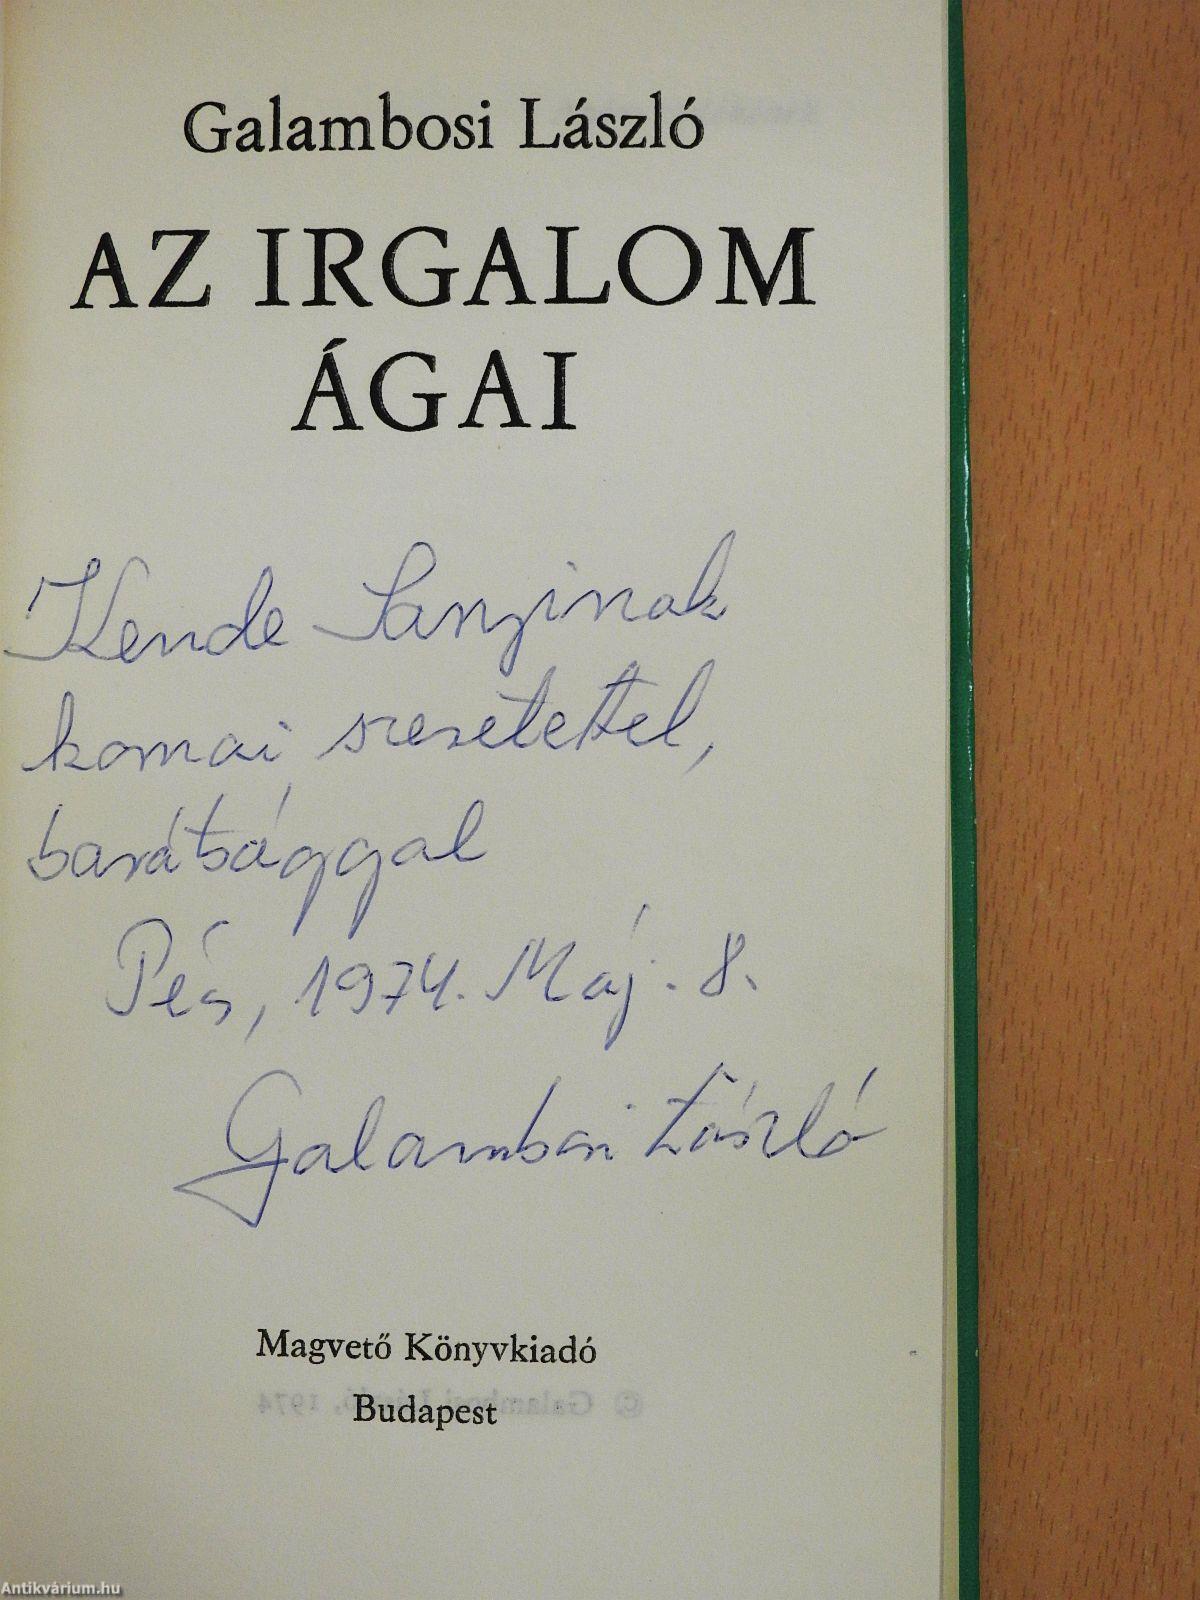 Galambosi László
AZ IRGALOM
ÁGAI
Kende Sanyinak
komai szeretettel,
barátsággal
Pécs, 1974. Máj. 8.
Galambosi László
Magvető Könyvkiadó
Budapest
© Galambosi László, 1974
Antikvárium.hu